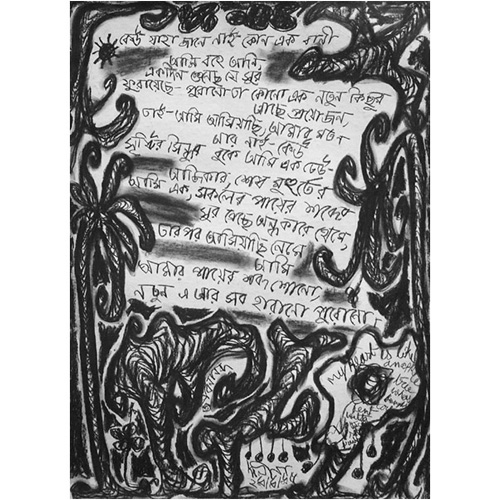 কেউ যাহা জানে নাই কোন এক বাণী
আমি বহে আনি,
একদিন শুনেছ যে সুর
ফুরায়েছে- পুরানো তা কোনো এক নতুন কিছুর
আছে প্রয়োজন,
তাই- আমি আসিয়াছি, আমার মতন
আর নাই- কেউ
সৃষ্টির সিন্ধুর বুকে আমি এক ঢেউ-
আজিকার, শেষ মুহূর্তের
আমি এক, সকলের পায়ের শব্দের
সুর গেছে অন্ধকারে থেমে,
তারপর আসিয়াছি নেমে
আমি
আমার পায়ের শব্দ শোনো,
নতুন এ আর সব হারানো পুরোনো।
My heart is like
another
tree